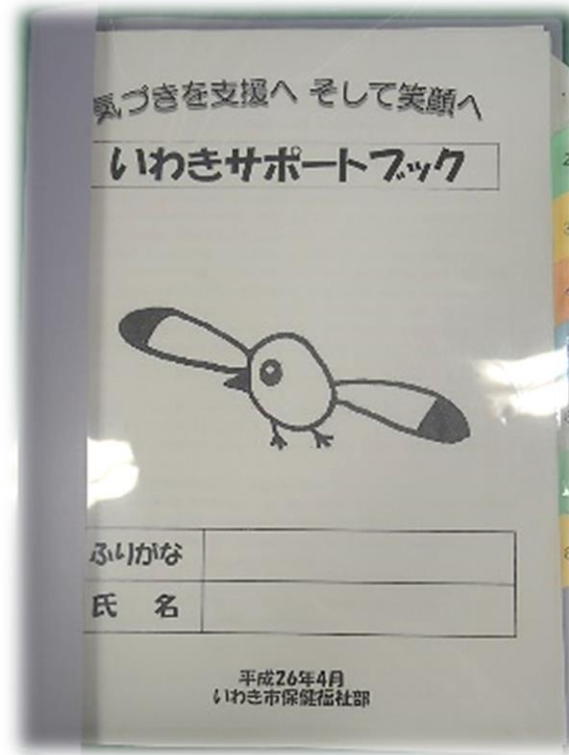 気づきを支援へ そして笑顔へ
いわきサポートブック
ふりがな
氏 名
平成26年4月
いわき市保健福祉部
2
3
8